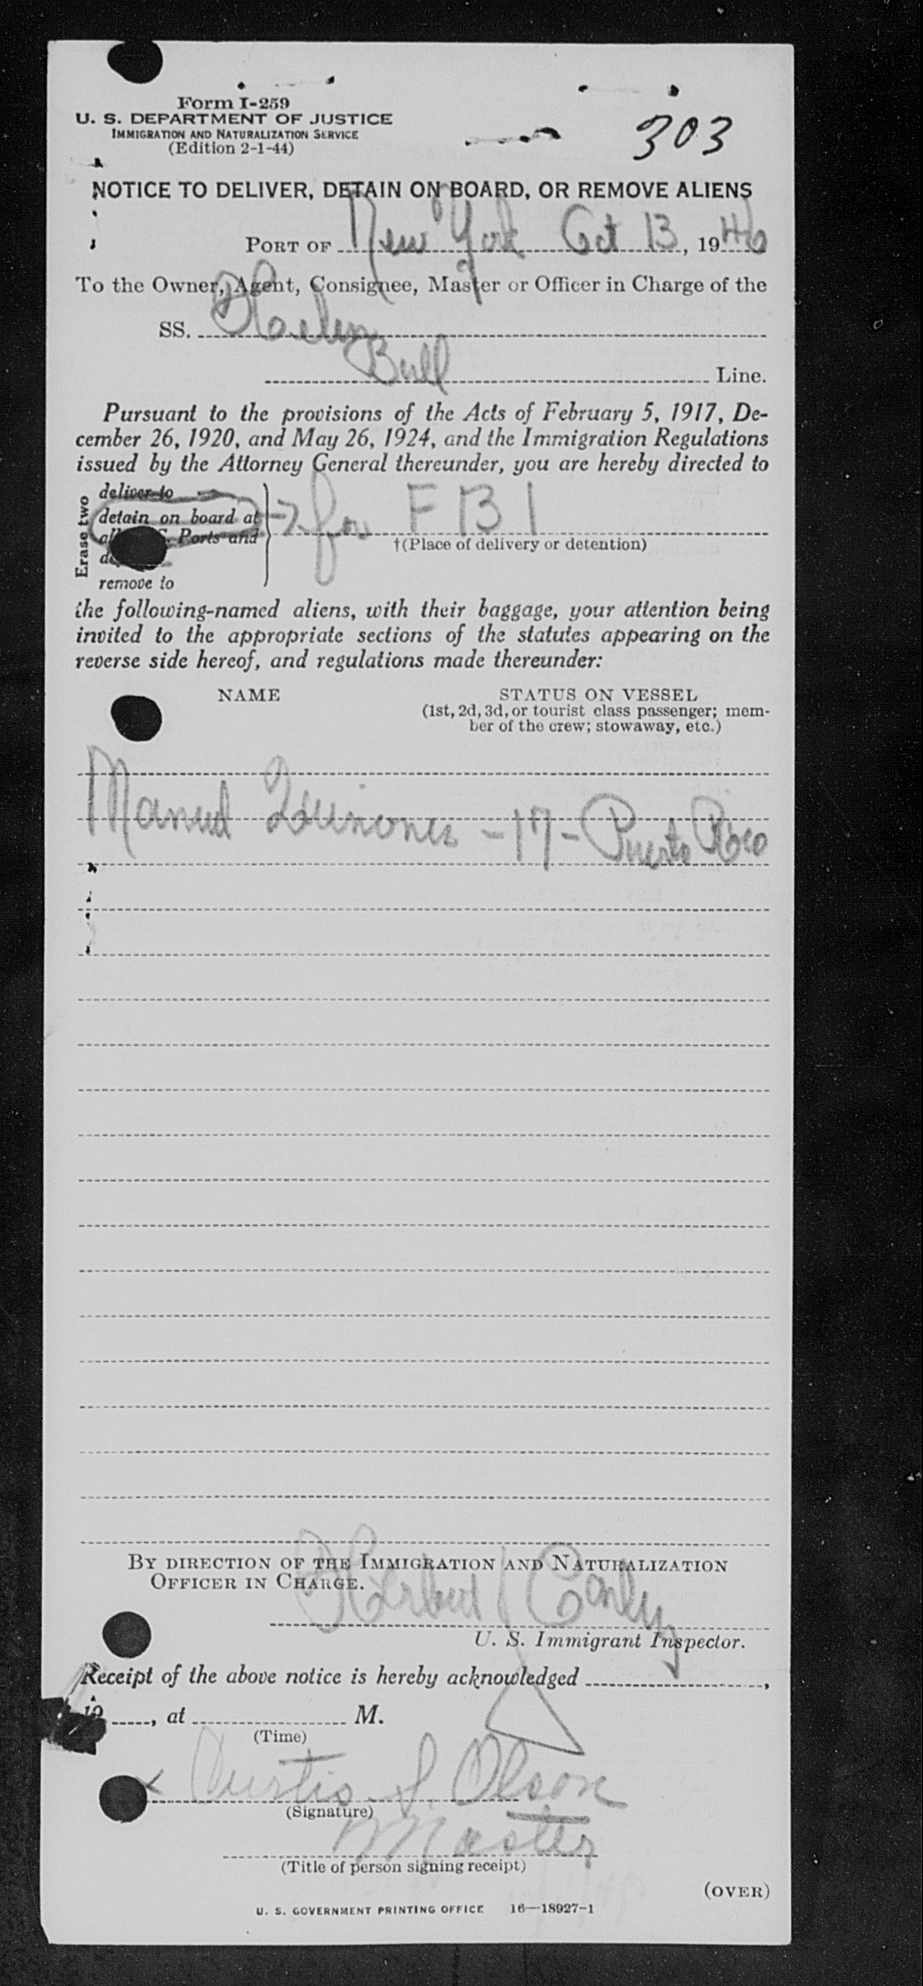 Form I-259
U. S. DEPARTMENT OF JUSTICE
IMMIGRATION AND NATURALIZATION SERVICE
(Edition 2-1-44)
303
NOTICE TO DELIVER, DETAIN ON BOARD, OR REMOVE ALIENS
PORT OF New York Oct 13, 1946
To the Owner, Agent, Consignee, Master or Officer in Charge of the
SS. Helen
Bull Line.
Pursuant to the provisions of the Acts of February 5, 1917, De-
cember 26, 1920, and May 26, 1924, and the Immigration Regulations
issued by the Attorney General thereunder, you are hereby directed to
Erase two
deliver to
detain on board at → for FBI
Ports and
†(Place of delivery or detention)
remove to
the following-named aliens, with their baggage, your attention being
invited to the appropriate sections of the statutes appearing on the
reverse side hereof, and regulations made thereunder:
NAME STATUS ON VESSEL
(1st, 2d, 3d, or tourist class passenger; mem-
ber of the crew; stowaway, etc.)
Manuel Quinones - 17 - Puerto Rico
BY DIRECTION OF THE IMMIGRATION AND NATURALIZATION
OFFICER IN CHARGE.
Herbert Conley
U. S. Immigrant Inspector.
Receipt of the above notice is hereby acknowledged ,
19 , at M.
(Time)
x Curtis S Olson
(Signature)
Master
(Title of person signing receipt)
(OVER)
U. S. GOVERNMENT PRINTING OFFICE 16—18927-1